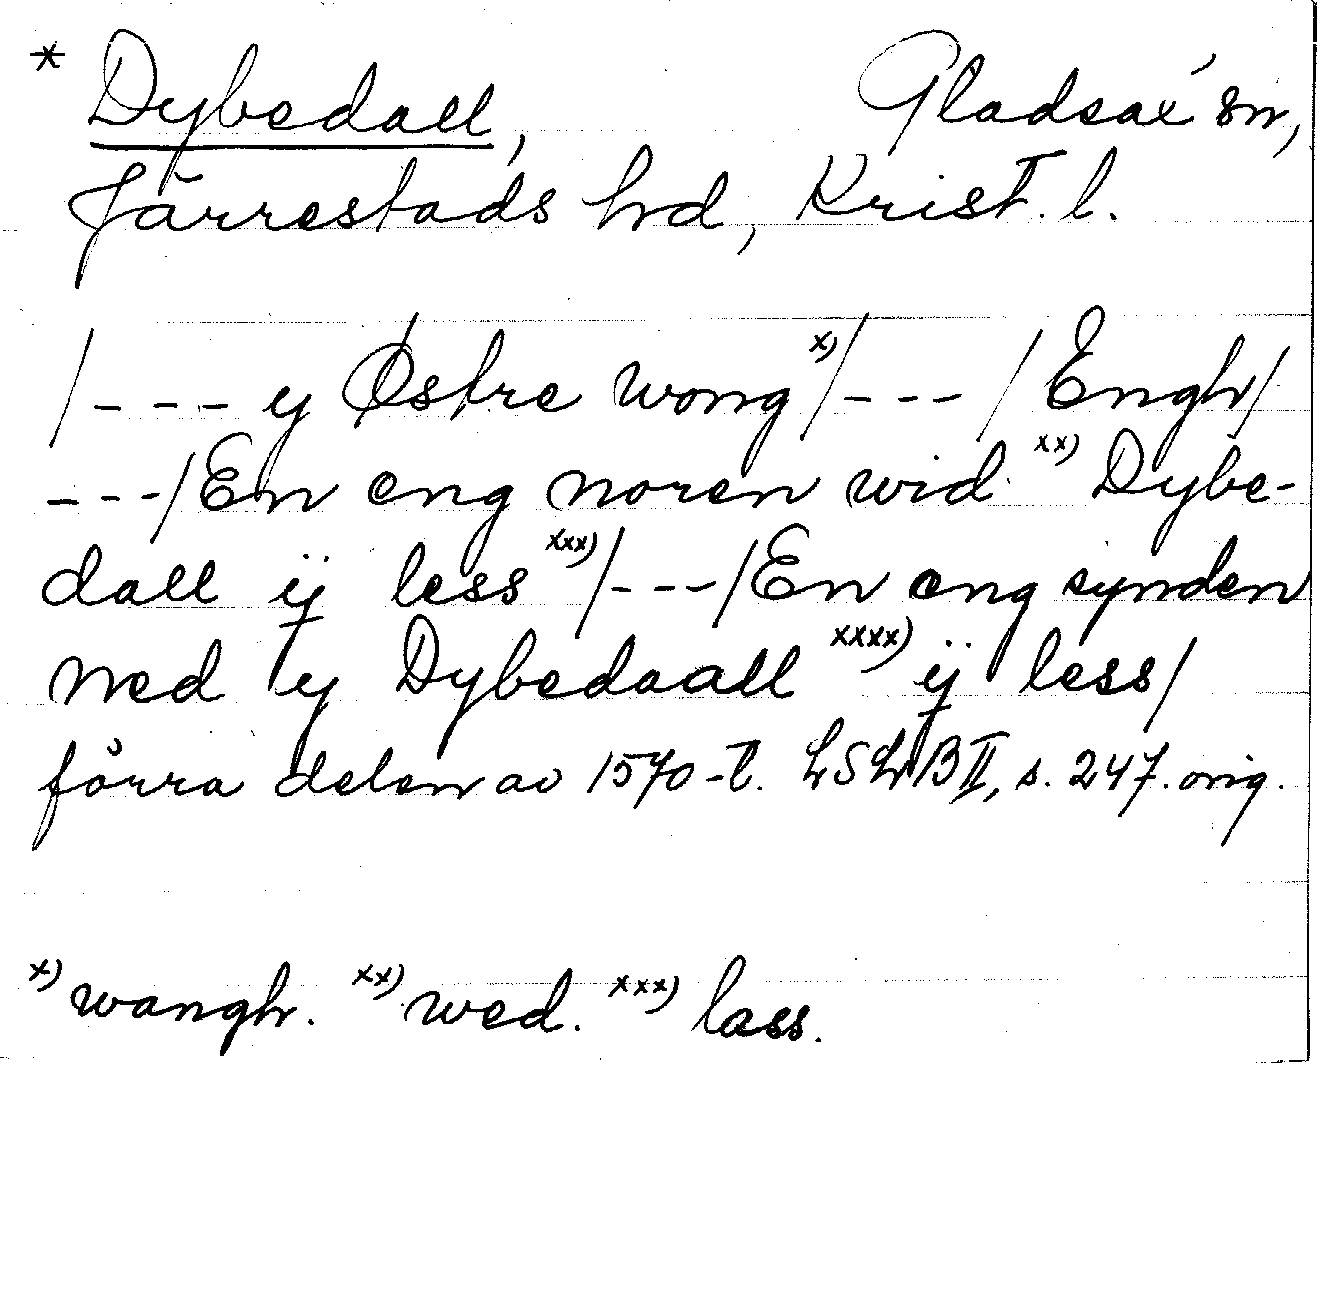 * Dybedall, Gladsax sn,
Järrestads hd, Krist. l.
/--- y Østre wong x)/---/Engh/
---/En eng noren wid xx) Dybe-
dall ij less xxx)/---/En eng synden
ned y Dybedaall xxxx) ij less/
förra delen av 1570-t. LSLB II, s. 247. orig.
x) wangh. xx) wed. xxx) lass.